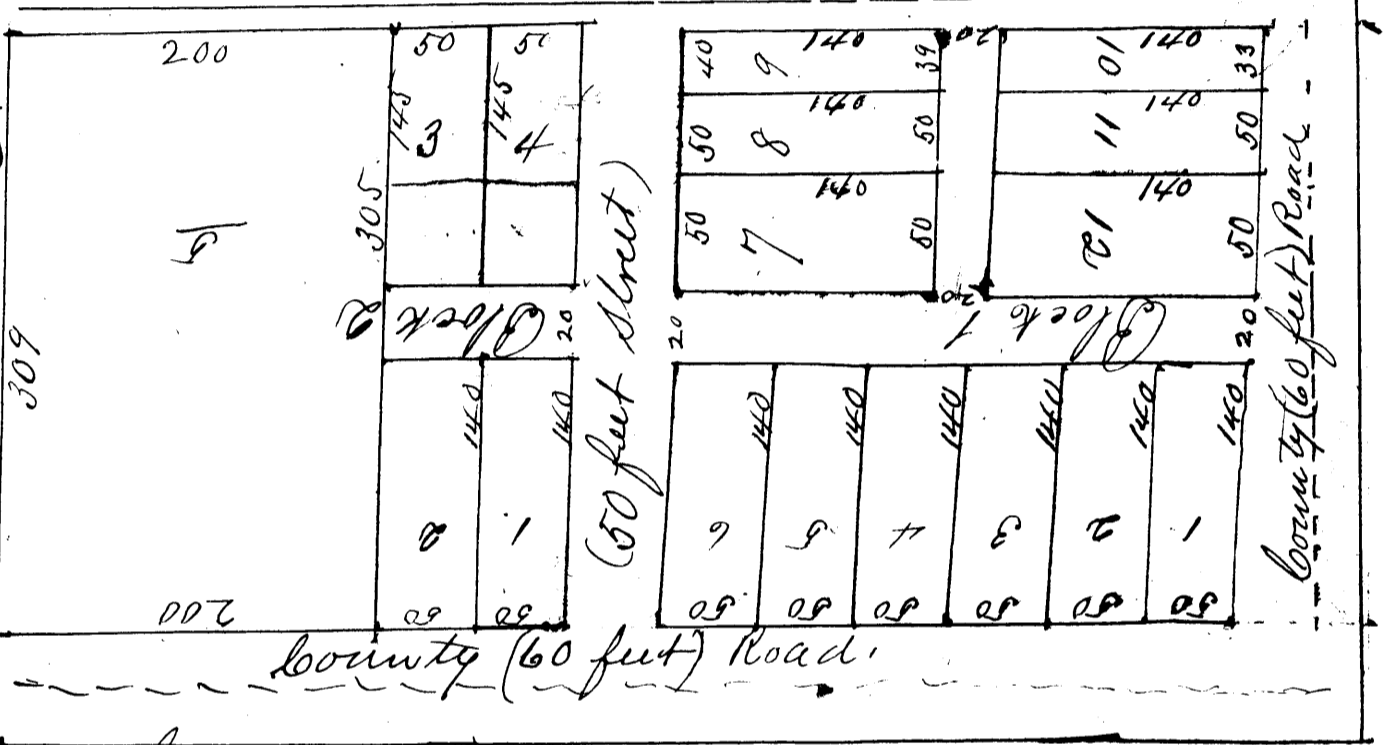 200
50
145
3
145
4
305
5
309
Block 2
20
140
140
2
1
200
50
50
(50 feet street)
40
9
140
39
50
8
140
50
50
7
140
50
20
20
10
140
33
11
140
50
12
140
50
20
Block 1
20
140
140
140
140
140
140
6
5
4
3
2
1
50
50
50
50
50
50
County (60 feet) Road
County (60 feet) Road.